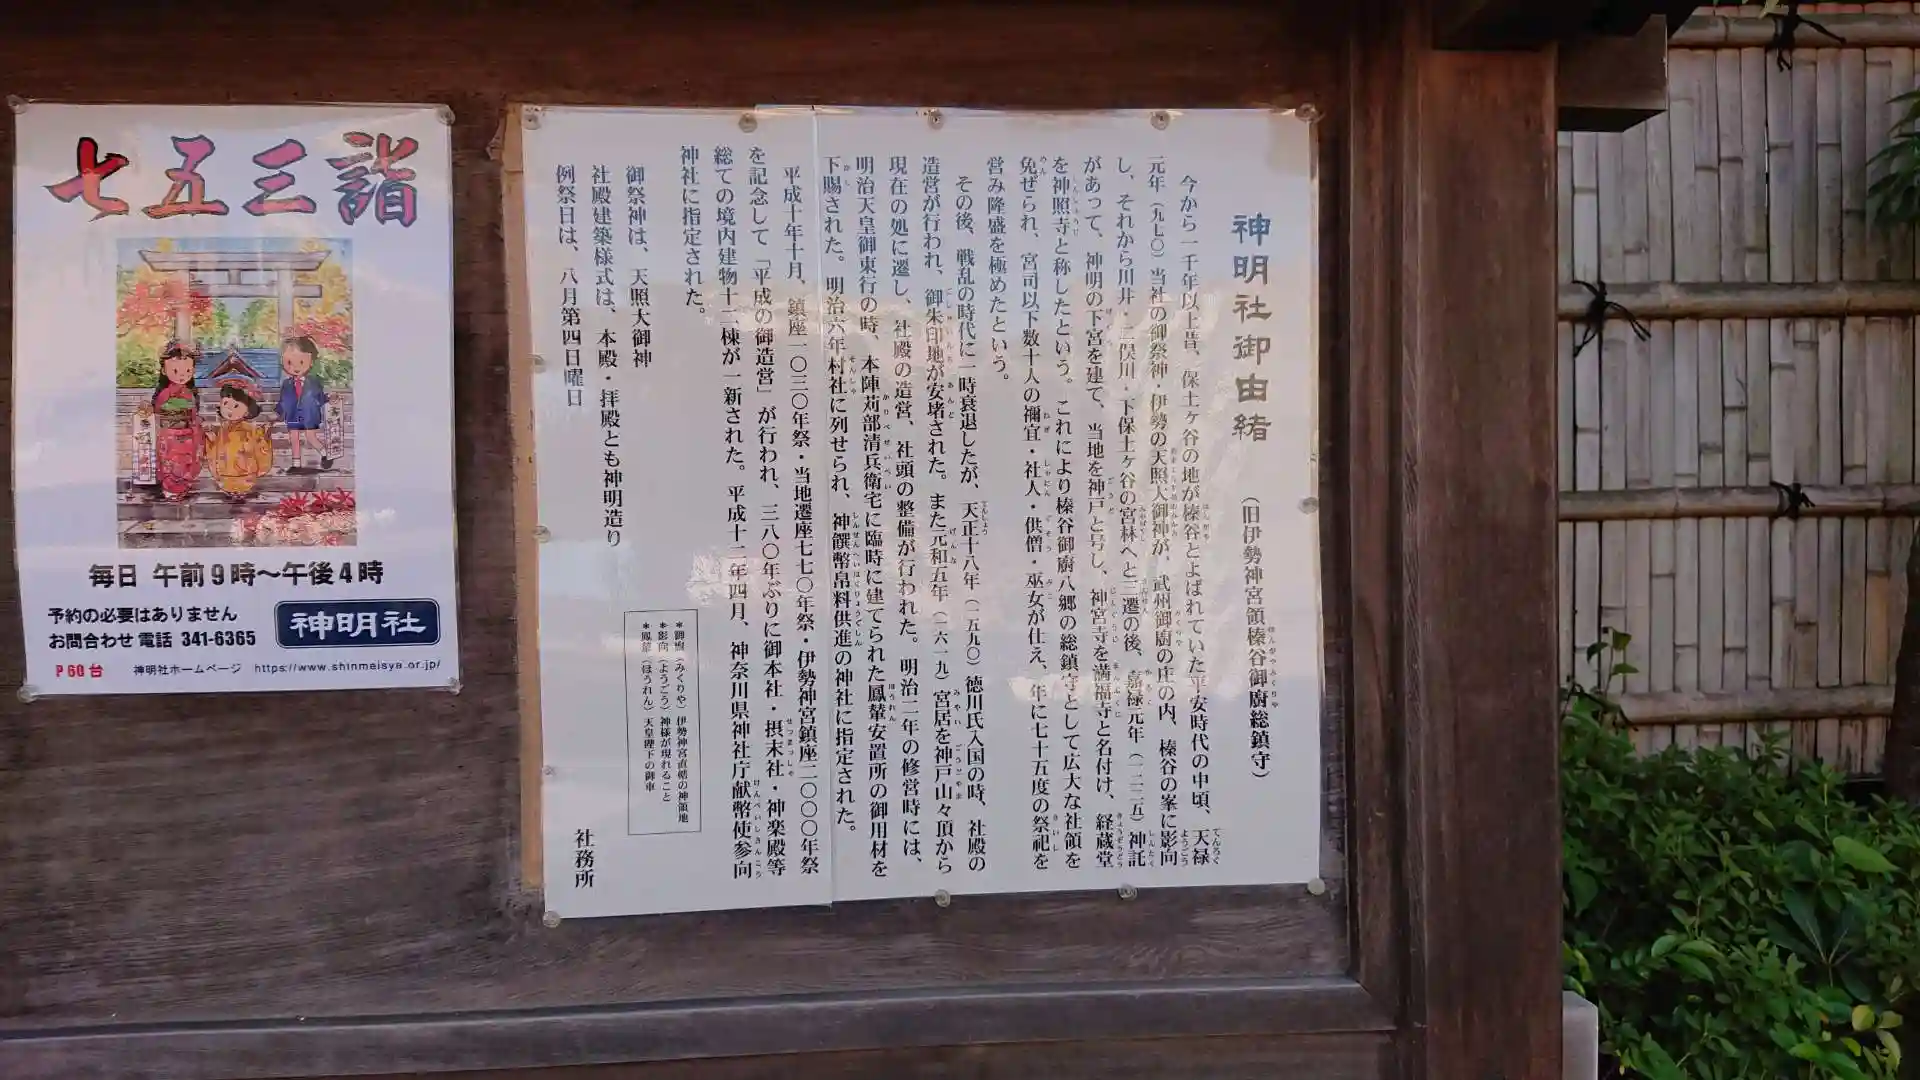 七五三詣
毎日 午前9時～午後4時
予約の必要はありません
お問合わせ 電話 341-6365
神明社
P60台 神明社ホームページ https://www.shinmeisya.or.jp/
神明社御由緒 (旧伊勢神宮領榛谷御廚総鎮守)
今から一千年以上昔、保土ヶ谷の地が榛谷とよばれていた平安時代の中頃、天禄
元年(九七〇)当社の御祭神・伊勢の天照大御神が、武州御廚の庄の内、榛谷の峯に影向
し、それから川井・二俣川・下保土ヶ谷の宮林へと三遷の後、嘉禄元年(一二二五)神託
があって、神明の下宮を建て、当地を神戸と号し、神宮寺を満福寺と名付け、経蔵堂
を神照寺と称したという。これにより榛谷御廚八郷の総鎮守として広大な社領を
免ぜられ、宮司以下数十人の禰宜・社人・供僧・巫女が仕え、年に七十五度の祭祀を
営み隆盛を極めたという。
その後、戦乱の時代に一時衰退したが、天正十八年(一五九〇)徳川氏入国の時、社殿の
造営が行われ、御朱印地が安堵された。また元和五年(一六一九)宮居を神戸山々頂から
現在の処に遷し、社殿の造営、社頭の整備が行われた。明治二年の修営時には、
明治天皇御東行の時、本陣苅部清兵衛宅に臨時に建てられた鳳輦安置所の御用材を
下賜された。明治六年村社に列せられ、神饌幣帛料供進の神社に指定された。
平成十年十月、鎮座一〇三〇年祭・当地遷座七七〇年祭・伊勢神宮鎮座二〇〇〇年祭
を記念して「平成の御造営」が行われ、三八〇年ぶりに御本社・摂末社・神楽殿等
総ての境内建物十二棟が一新された。平成十二年四月、神奈川県神社庁献幣使参向
神社に指定された。
御祭神は、天照大御神
社殿建築様式は、本殿・拝殿とも神明造り
例祭日は、八月第四日曜日
＊御廚(みくりや)伊勢神宮直轄の神領地
＊影向(ようごう)神様が現れること
＊鳳輦(ほうれん)天皇陛下の御車
社務所